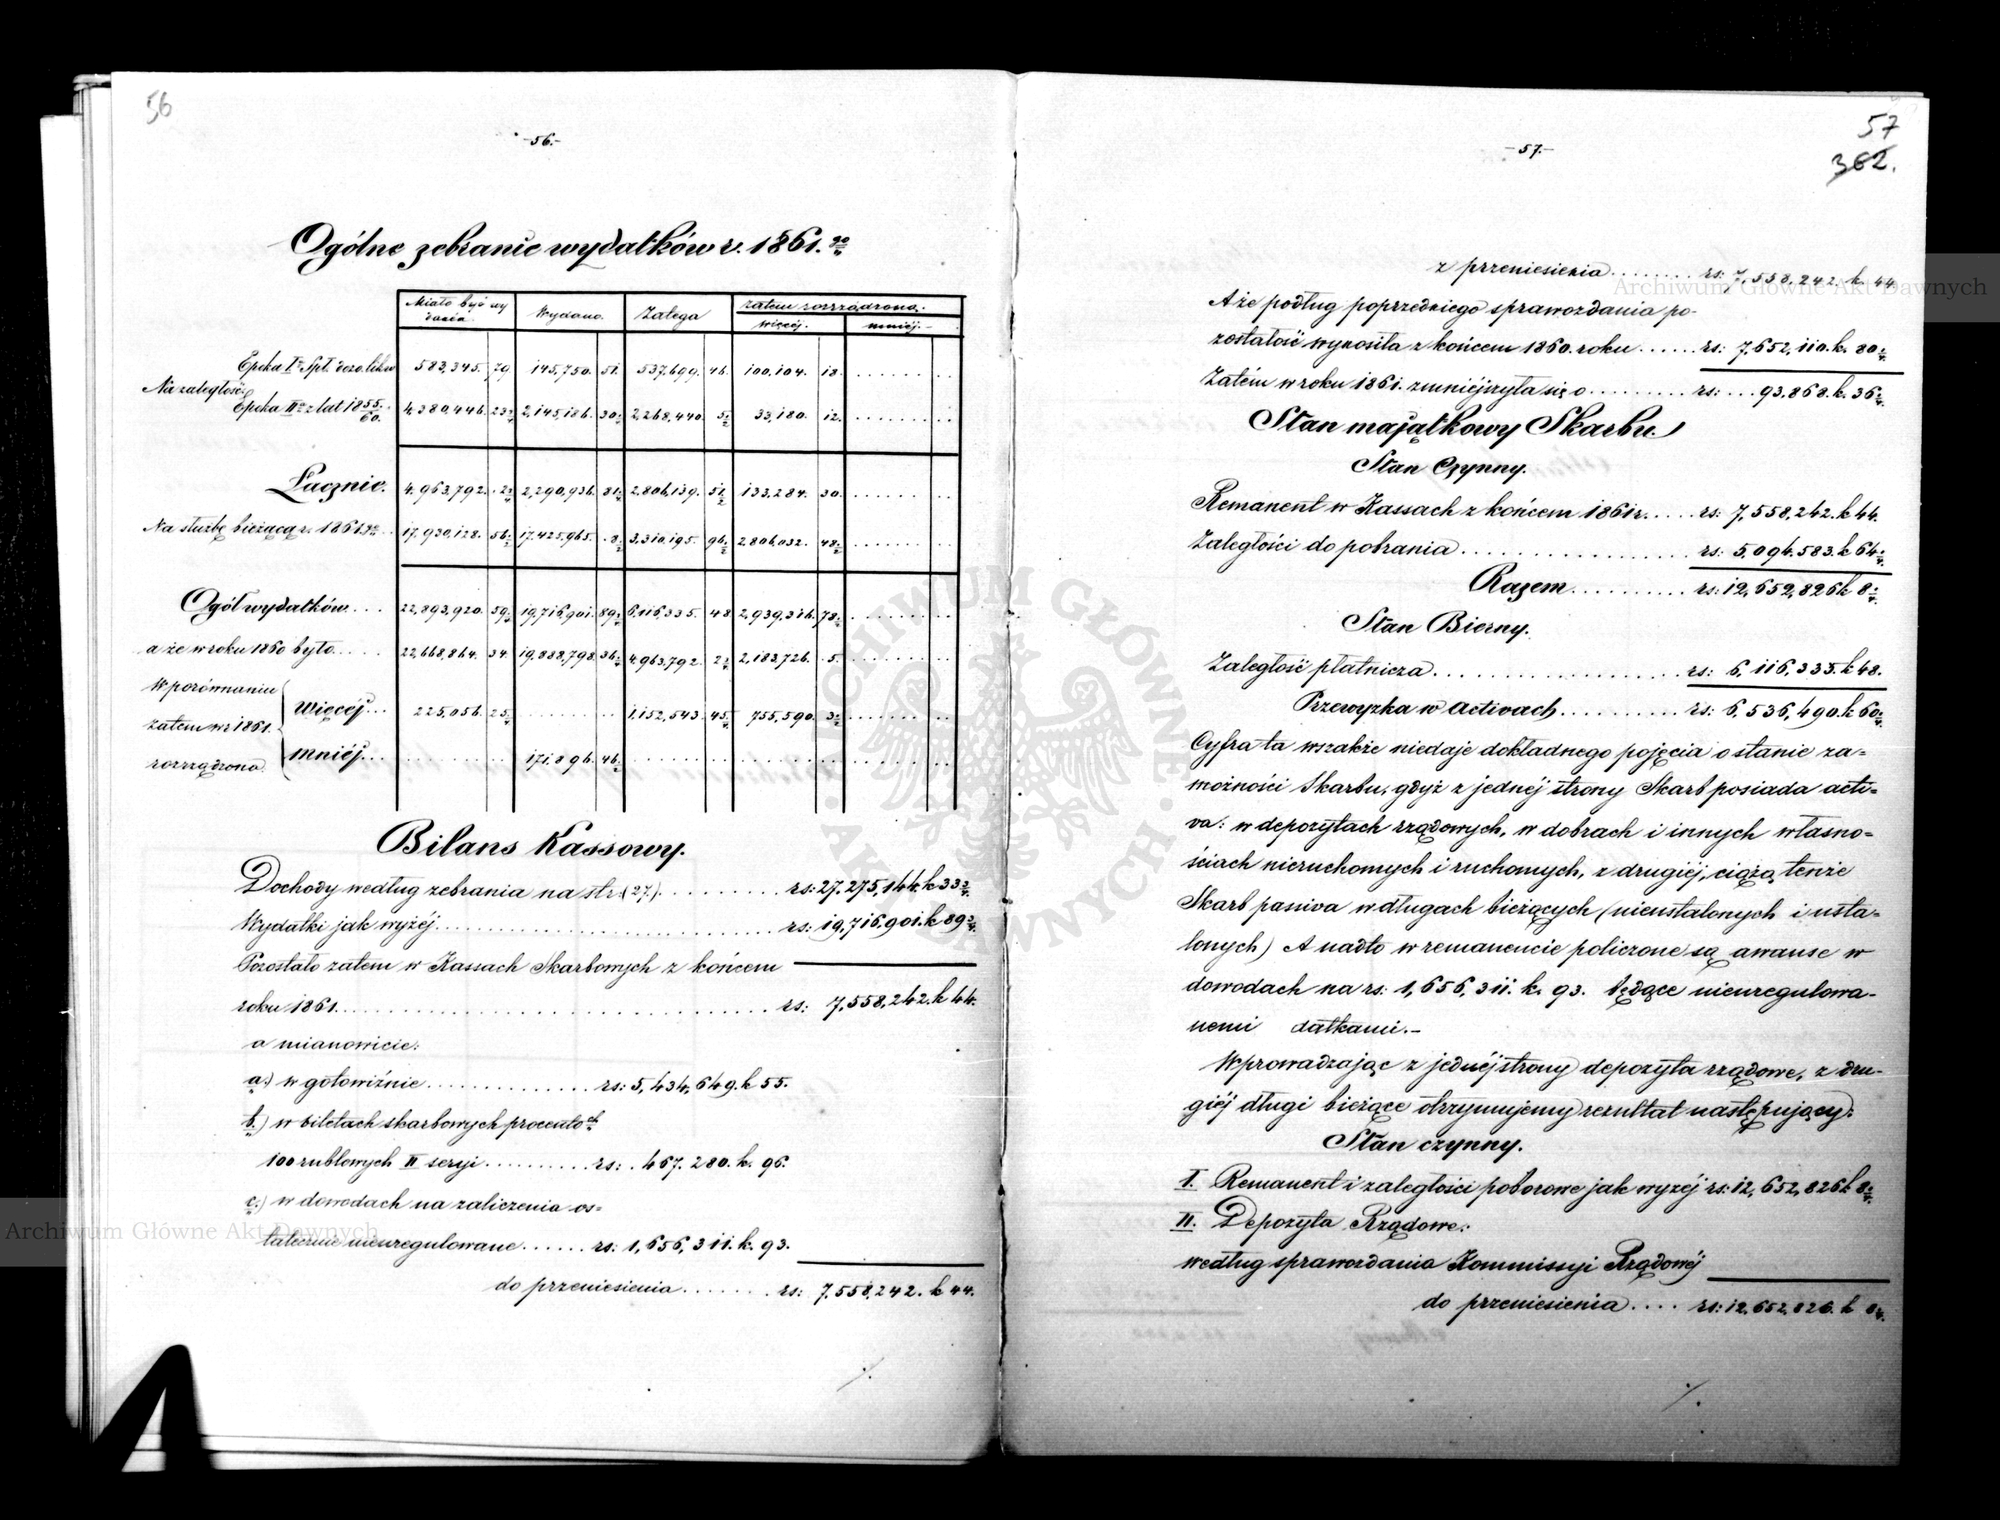 56
-56.-
Ogólne zebranie wydatków r. 1861.go
Miało być wydania. Wydano. Zalega zatem rozrządzono:
więcéj. mniéj.-
Na zaległości
Epoka Ia 583,345. 79 145,750. 51. 537,699. 46. 100,104. 18.
Epoka IIa z lat 1855/60. 4,380,446. 23 2,145,186. 30 2,268,440. 5 33,180. 12.
Łącznie. 4,963,792. 2 2,290,936. 81 2,806,139. 51 133,284. 30.
Na służbę bieżącą r. 1861.go 17,930,128. 56 17,425,965. 8 3,310,195. 96 2,806,032. 48
Ogół wydatków.... 22,893,920. 59 19,716,901. 89 6,116,335. 48 2,939,316. 78
a że w roku 1860 było.... 22,668,864. 34. 19,888,798. 36 4,963,792. 2 2,183,726. 5.
W porównaniu
zatem w r. 1861.
rozrządzono
więcéj... 225,056. 25 1,152,543. 45 755,590. 3
mniéj... 171.896. 46
Bilans Kassowy.
Dochody według zebrania na str. (27.)......... rs: 27.275,144. k 33
Wydatki jak wyżéj......... rs: 19,716.901. k 89
Pozostało zatém w Kassach Skarbowych z końcem
roku 1861......... rs: 7,558,242. k 44.
a mianowicie:
a.) w gotowiźnie......... rs: 5,434,649. k 55.
b.) w biletach skarbowych procentoch
100 rublowych II seryi......... rs: . 467.280. k. 96.
c.) w dowodach na zaliczenia os=
tatecznie nieuregulowane...... rs: 1,656,311. k. 93.
do przeniesienia....... rs: 7,558,242. k 44.
57
362.
-57.-
z przeniesienia........ rs: 7,558,242. k. 44
A że podług poprzedniego sprawozdania po-
zostałość wynosiła z końcem 1860. roku...... rs: 7,652,110. k. 80
Zatém w roku 1861. zmniejszyła się o......... rs: ... 93,868. k. 36
Stan majątkowy Skarbu.
Stan Czynny.
Remanent w Kassach z końcem 1861 r..... rs: 7,558,242. k 44.
Zaległości do pobrania......... rs: 5,094,583. k 64
Razem......... rs: 12,652,826 k 8
Stan Bierny.
Zaległość płatnicza......... rs: 6,116,335. k 48.
Przewyżka w activach......... rs: 6,536,490. k 60
Cyfra ta wszakże niedaje dokładnego pojęcia o stanie za=
możności Skarbu, gdyż z jednéj strony Skarb posiada acti=
va: w depozytach rządowych, w dobrach i innych własno=
ściach nieruchomych i ruchomych, z drugiéj, ciążą tenże
Skarb passiva w długach bieżących (nieustalonych i usta=
lonych) A nadto w remanencie policzone są awanse w
dowodach na rs: 1,656,311. k. 93. będące nieuregulowa-
nemi datkami.-
Wprowadzając z jednéj strony depozyta rządowe, z dru-
giéj długi bieżące otrzymujemy rezultat następujący:
Stan czynny.
I. Remanent i zaległości poborowe jak wyżéj rs: 12,652,826 k 8
II. Depozyta Rządowe:
według sprawozdania Kommissyi Rządowéj
do przeniesienia.... rs: 12,652,826. k 8
Archiwum Główne Akt Dawnych
Archiwum Główne Akt Dawnych
ARCHIWUM GŁÓWNE AKT DAWNYCH